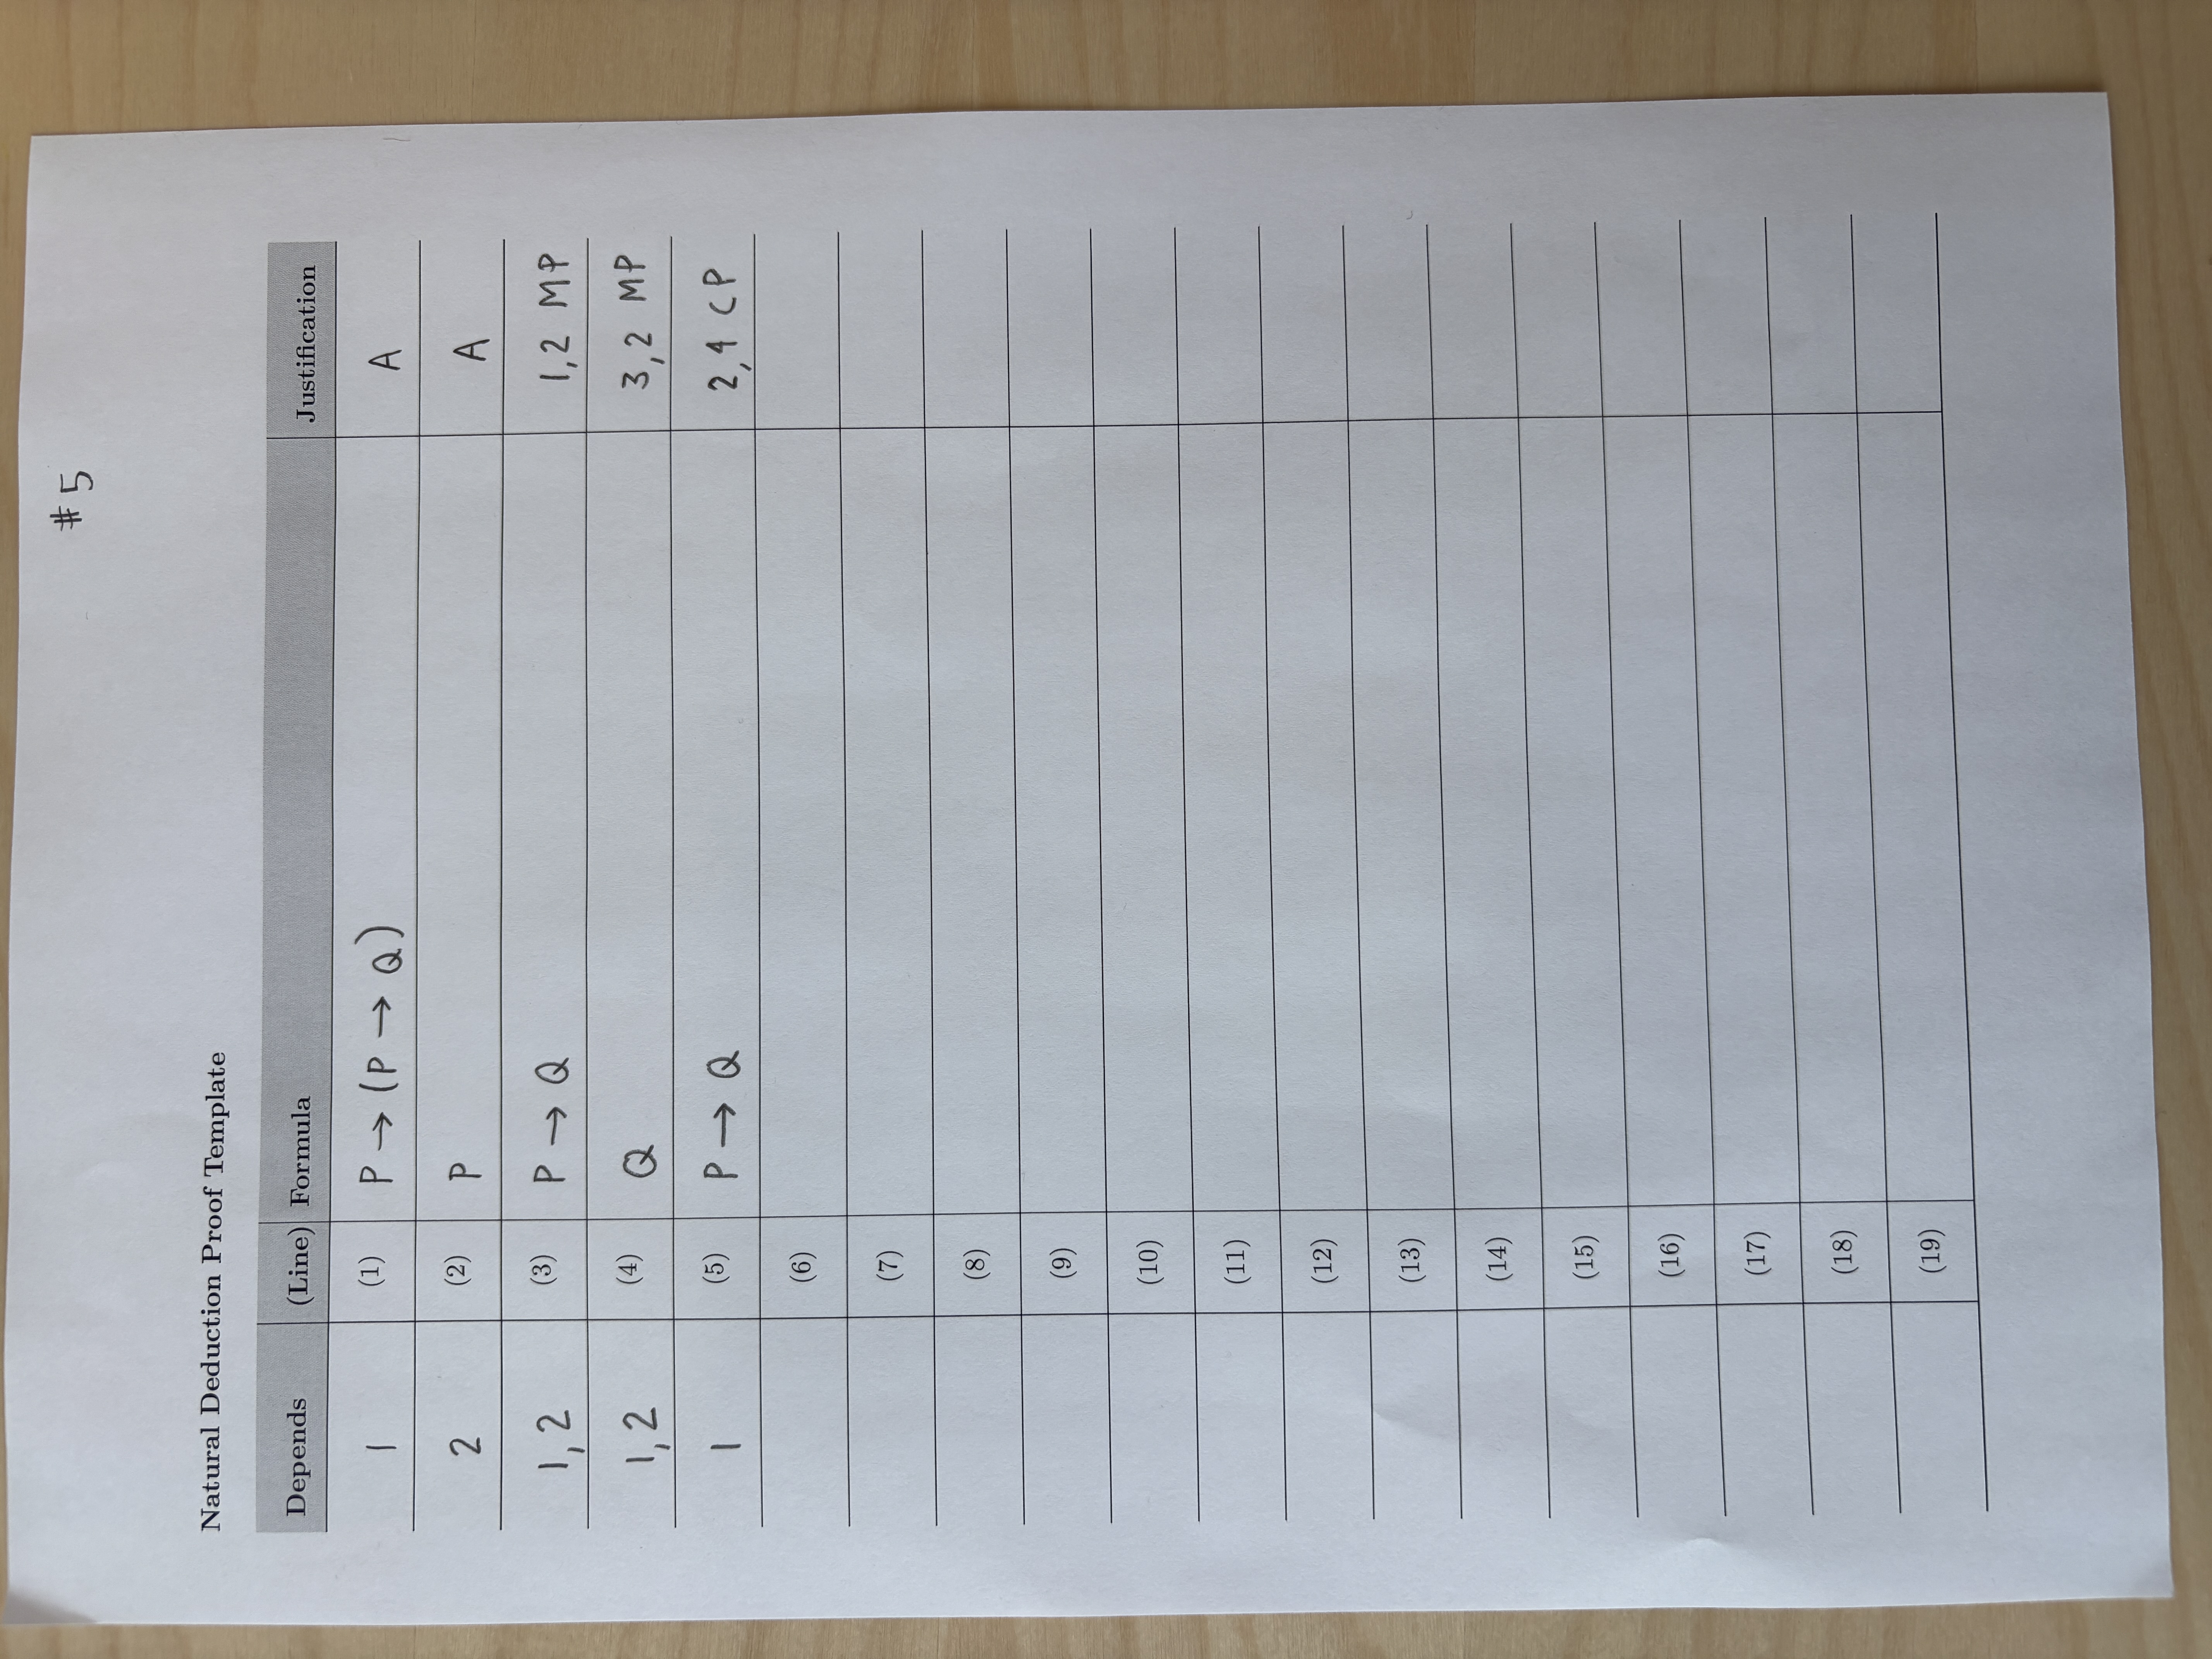 #5
Natural Deduction Proof Template
Depends (Line) Formula Justification
1 (1) P → (P → Q) A
2 (2) P A
1,2 (3) P → Q 1,2 MP
1,2 (4) Q 3,2 MP
1 (5) P → Q 2,4 CP
(6)
(7)
(8)
(9)
(10)
(11)
(12)
(13)
(14)
(15)
(16)
(17)
(18)
(19)